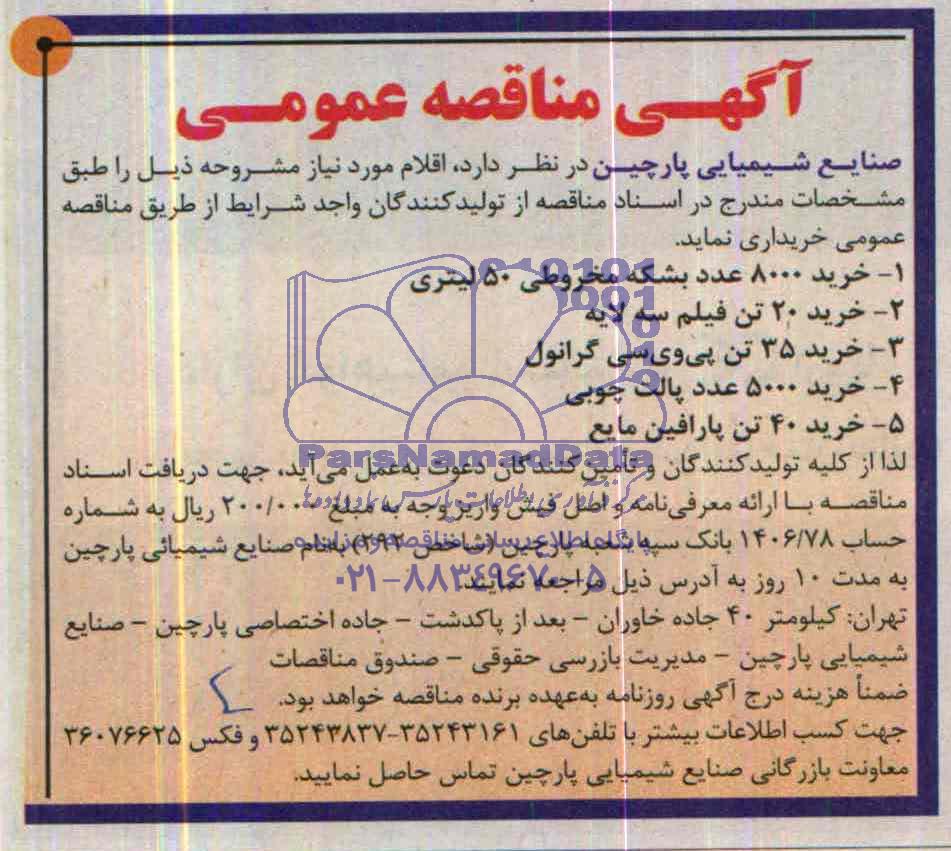 آگهی مناقصه عمومی
صنایع شیمیایی پارچین در نظر دارد، اقلام مورد نیاز مشروحه ذیل را طبق
مشخصات مندرج در اسناد مناقصه از تولیدکنندگان واجد شرایط از طریق مناقصه
عمومی خریداری نماید.
۱- خرید ۸۰۰۰ عدد بشکه مخروطی ۵۰ لیتری
۲- خرید ۲۰ تن فیلم سه لایه
۳- خرید ۳۵ تن پی‌وی‌سی گرانول
۴- خرید ۵۰۰۰ عدد پالت چوبی
۵- خرید ۴۰ تن پارافین مایع
ParsNamadData
لذا از کلیه تولیدکنندگان و تأمین‌کنندگان دعوت به‌عمل می‌آید، جهت دریافت اسناد
مناقصه با ارائه معرفی‌نامه و اصل فیش واریز وجه به مبلغ ۲۰۰/۰۰۰ ریال به شماره
حساب ۱۴۰۶/۷۸ بانک سپه شعبه پارچین (شاخص ۲۹۲) به‌نام صنایع شیمیائی پارچین
به مدت ۱۰ روز به آدرس ذیل مراجعه نمایند.
۰۲۱-۸۸۳۴۹۶۷۰-۵
تهران: کیلومتر ۴۰ جاده خاوران - بعد از پاکدشت - جاده اختصاصی پارچین - صنایع
شیمیایی پارچین - مدیریت بازرسی حقوقی - صندوق مناقصات
ضمناً هزینه درج آگهی روزنامه به‌عهده برنده مناقصه خواهد بود.
جهت کسب اطلاعات بیشتر با تلفن‌های ۳۵۲۴۳۱۶۱-۳۵۲۴۳۸۳۷ و فکس ۳۶۰۷۶۶۲۵
معاونت بازرگانی صنایع شیمیایی پارچین تماس حاصل نمایید.